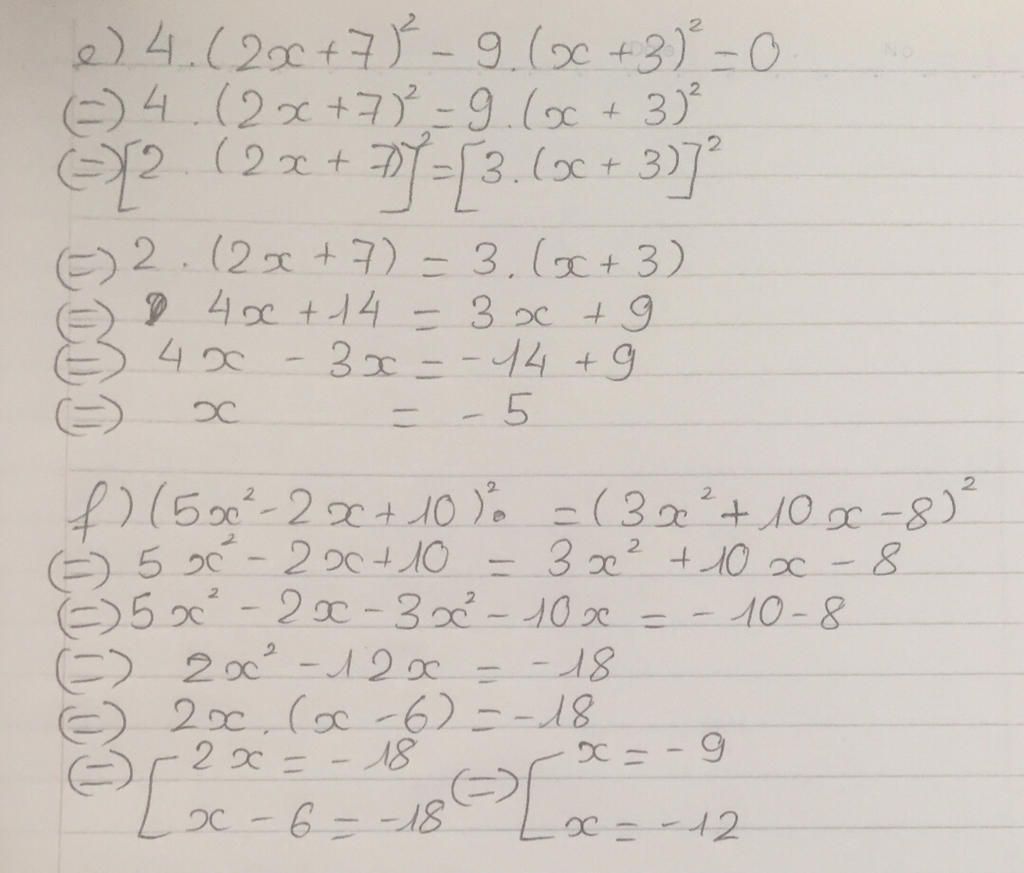 e) 4.(2x+7)² - 9.(x+3)² = 0
(=) 4.(2x+7)² = 9.(x+3)²
(=) [2.(2x+7)]² = [3.(x+3)]²
(=) 2.(2x+7) = 3.(x+3)
(=) 4x+14 = 3x+9
(=) 4x - 3x = -14+9
(=) x = -5
f) (5x²-2x+10)² = (3x²+10x-8)²
(=) 5x²-2x+10 = 3x²+10x-8
(=) 5x²-2x-3x²-10x = -10-8
(=) 2x²-12x = -18
(=) 2x.(x-6) = -18
(=) [2x = -18 (=) [x = -9
x-6 = -18 x = -12